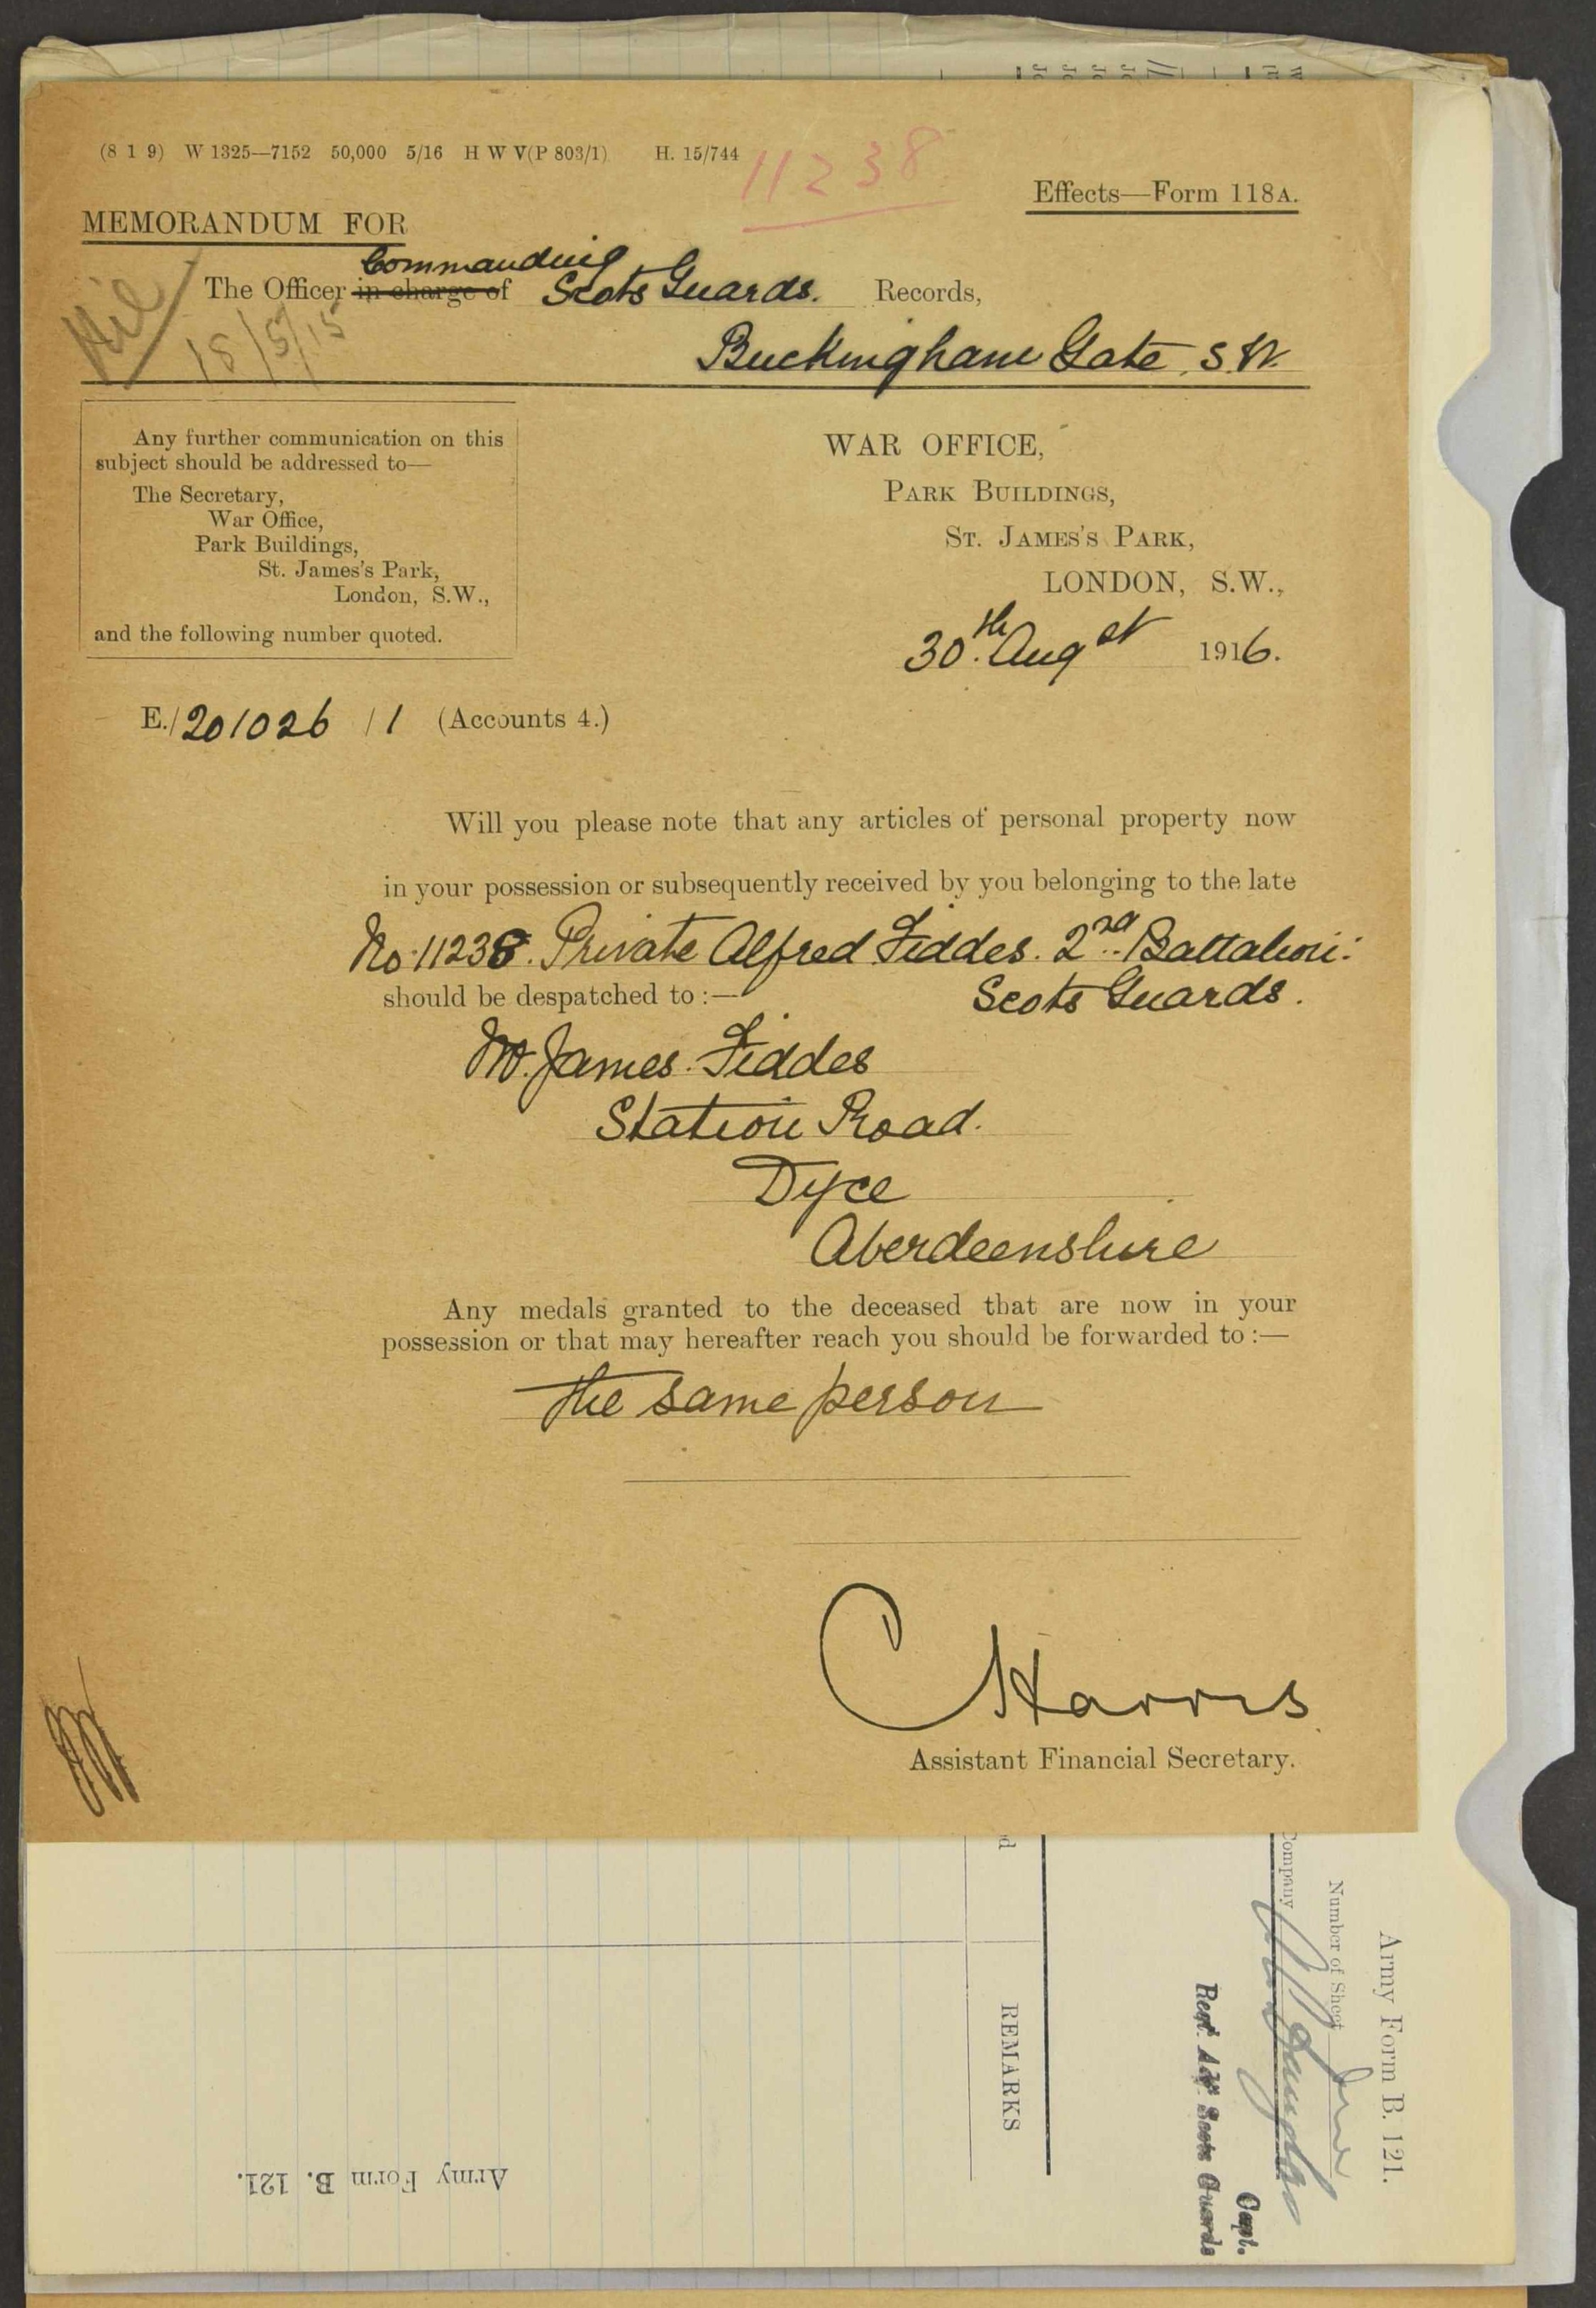 (8 1 9) W 1325—7152 50,000 5/16 H W V(P 803/1) H. 15/744
11238
Effects—Form 118A.
MEMORANDUM FOR
Commanding
The Officer in charge of Scots Guards. Records,
Buckingham Gate, S.W.
Nil
18/5/15
Any further communication on this
subject should be addressed to—
The Secretary,
War Office,
Park Buildings,
St. James's Park,
London, S.W.,
and the following number quoted.
WAR OFFICE,
PARK BUILDINGS,
ST. JAMES'S PARK,
LONDON, S.W.,
30th. Augst 1916.
E./201026 /1 (Accounts 4.)
Will you please note that any articles of personal property now
in your possession or subsequently received by you belonging to the late
No. 11238. Private Alfred Fiddes. 2nd. Battalion:
should be despatched to :— Scots Guards.
Mr. James. Fiddes
Station Road.
Dyce
Aberdeenshire
Any medals granted to the deceased that are now in your
possession or that may hereafter reach you should be forwarded to :—
the same person
C Harris
Assistant Financial Secretary.
Army Form B. 121.
Number of Sheet
Company
Capt.
Regt. Adjt. Scots Guards
REMARKS
Army Form B. 121.